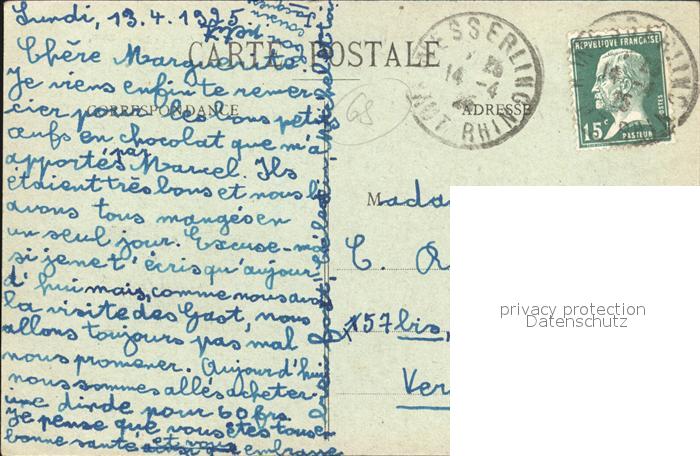 Lundi, 13.4.1925
CARTE POSTALE
CORRESPONDANCE
ADRESSE
68
Chère Marguerite
Je viens enfin te remer
cier pour les bons petits
œufs en chocolat que m'a
apportés par Marcel. Ils
étaient très bons et nous les
avons tous mangés en
un seul jour. Excuse-moi
si je ne t'écris qu'aujour
d'hui mais, comme nous avons
la visite des Gast, nous
allons toujours pas mal
nous promener. Aujourd'hui
nous sommes allés acheter
une dinde pour 60 frs.
Je pense que vous êtes tous en
bonne santé et vous embrasse
WESSERLING
14 -4
25
HAUT RHIN
REPUBLIQUE FRANÇAISE
POSTES
15c
PASTEUR
Mada
C. R
157 bis,
Ver
privacy protection
Datenschutz